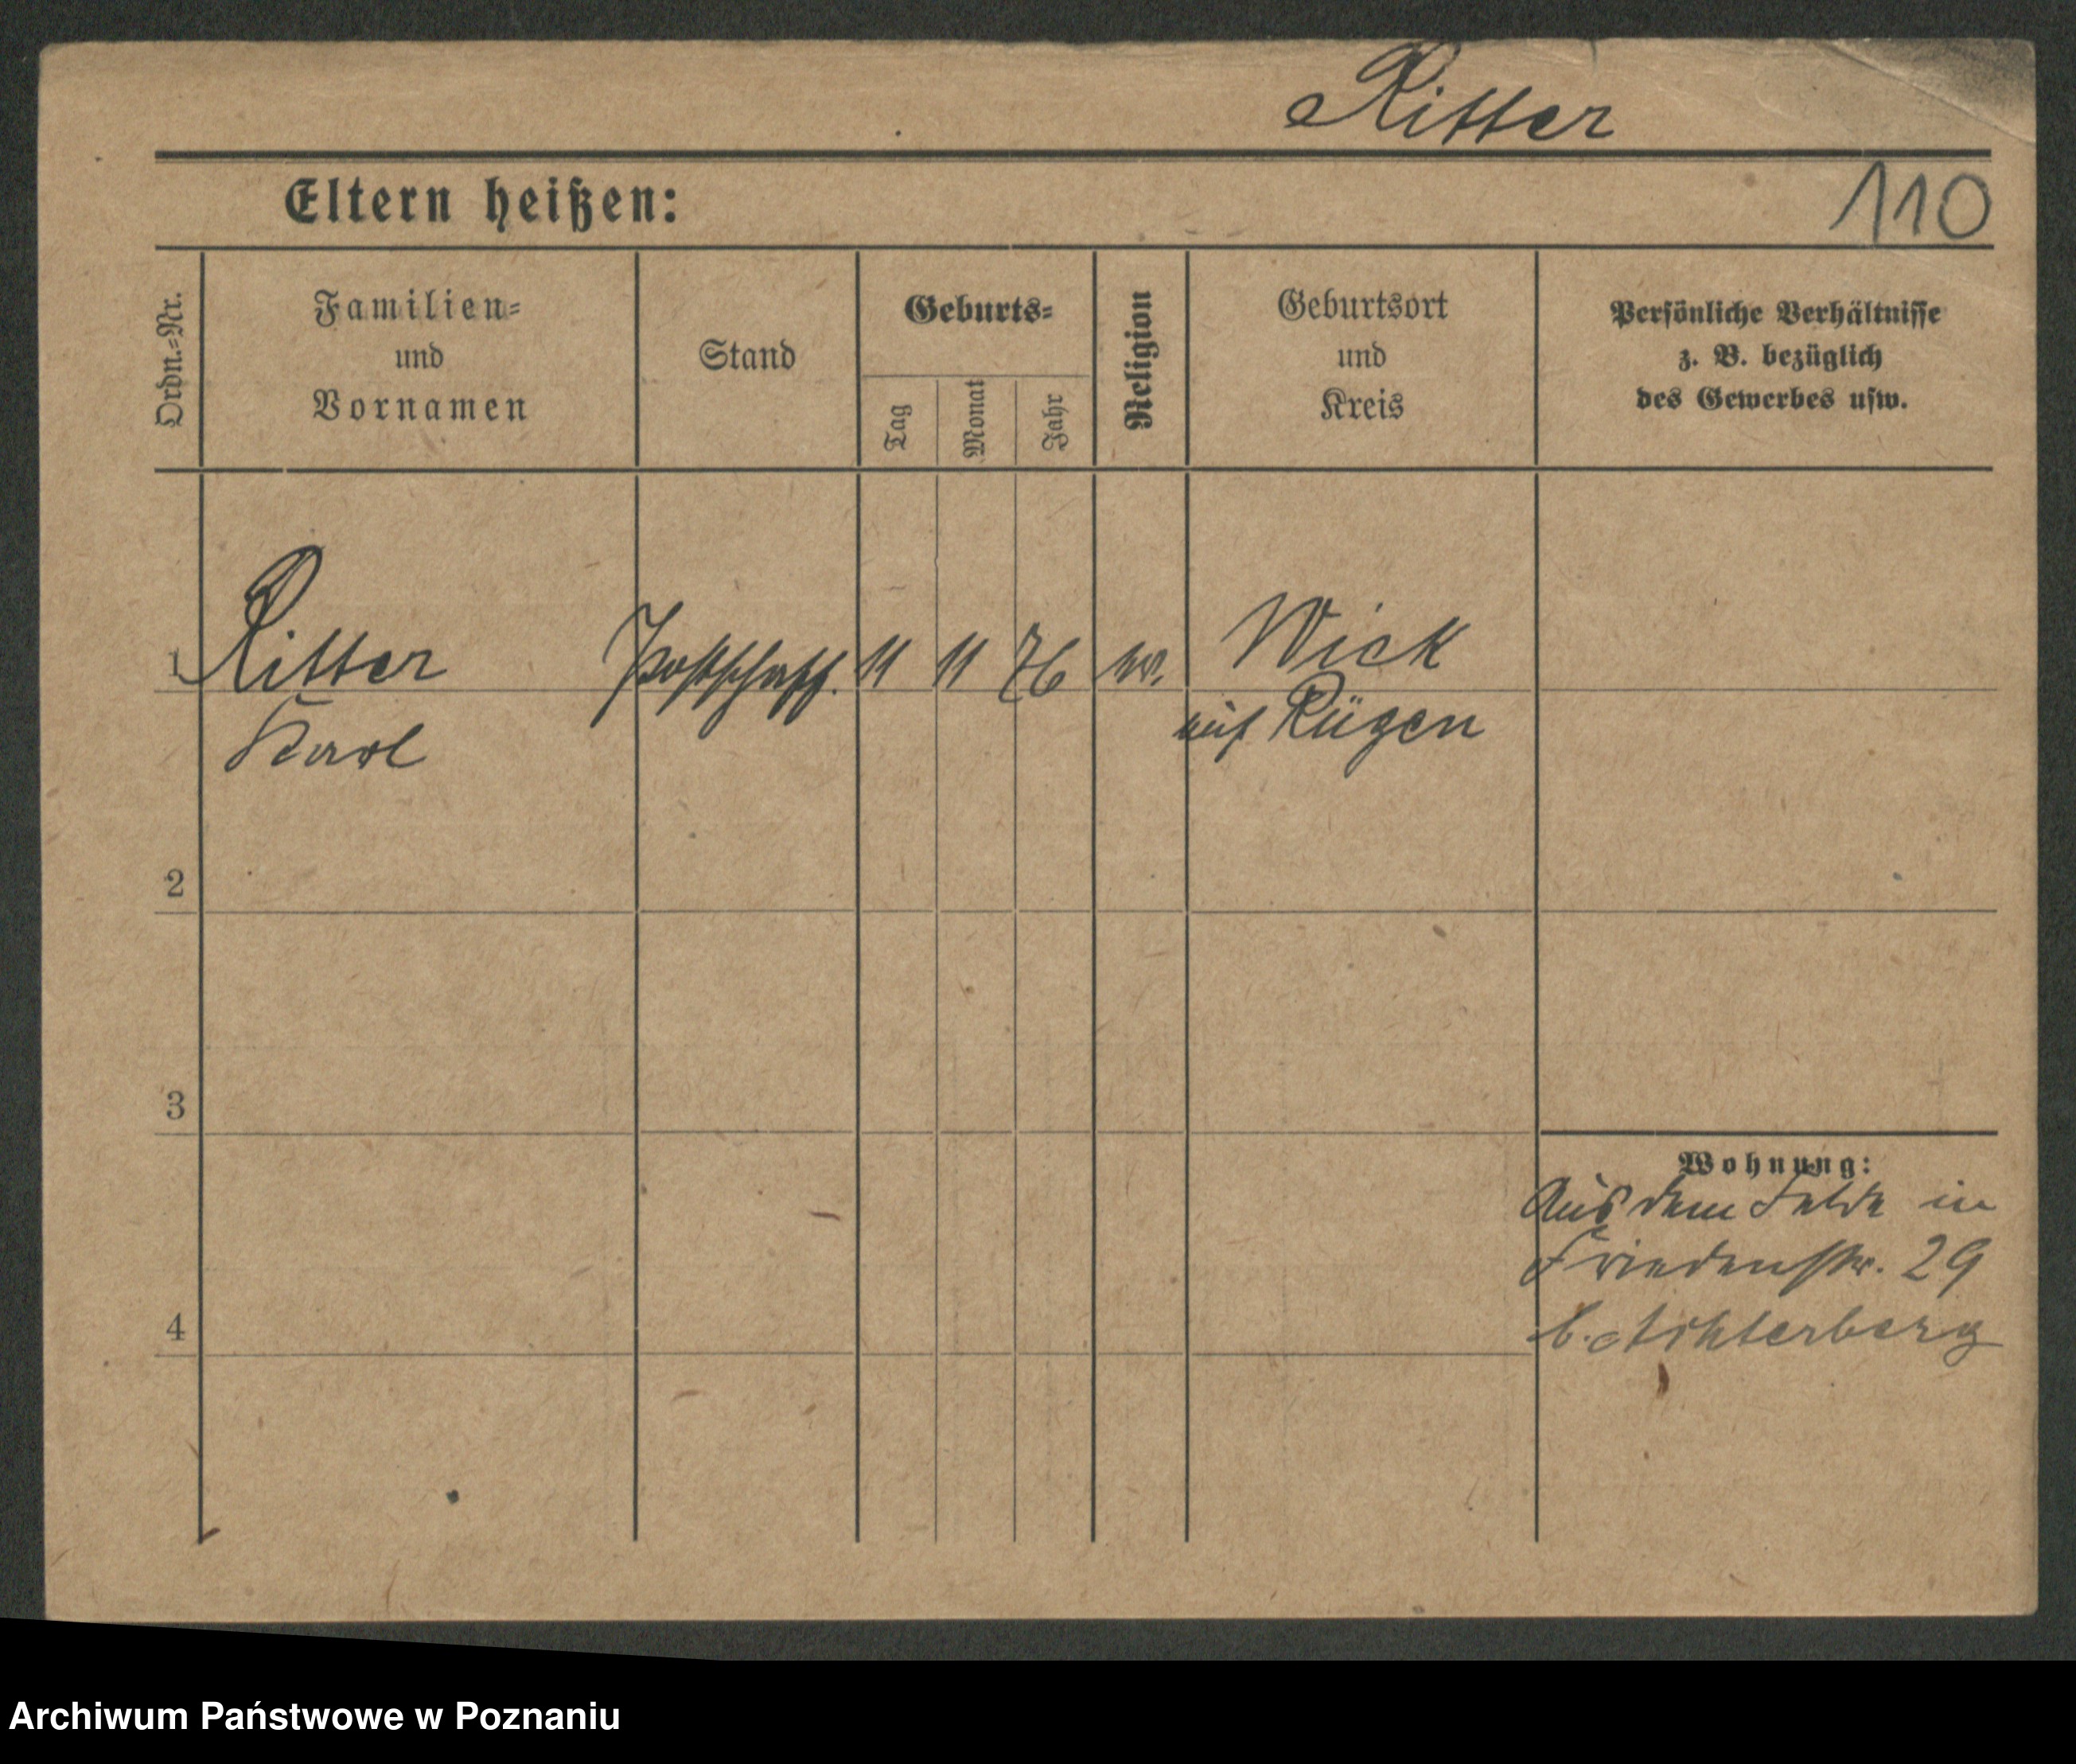 Ritter
Eltern heißen:
110
Ordn.=Nr.
Familien=
und
Vornamen
Stand
Geburts=
Tag
Monat
Jahr
Religion
Geburtsort
und
Kreis
Persönliche Verhältnisse
z. B. bezüglich
des Gewerbes usw.
1 Ritter Postschaff. 11 11 76 Wiek
Karl auf Rügen
2
3
4
Wohnung:
Aus dem Felde in
Friedenstr. 29
b. Achterberg
Archiwum Państwowe w Poznaniu